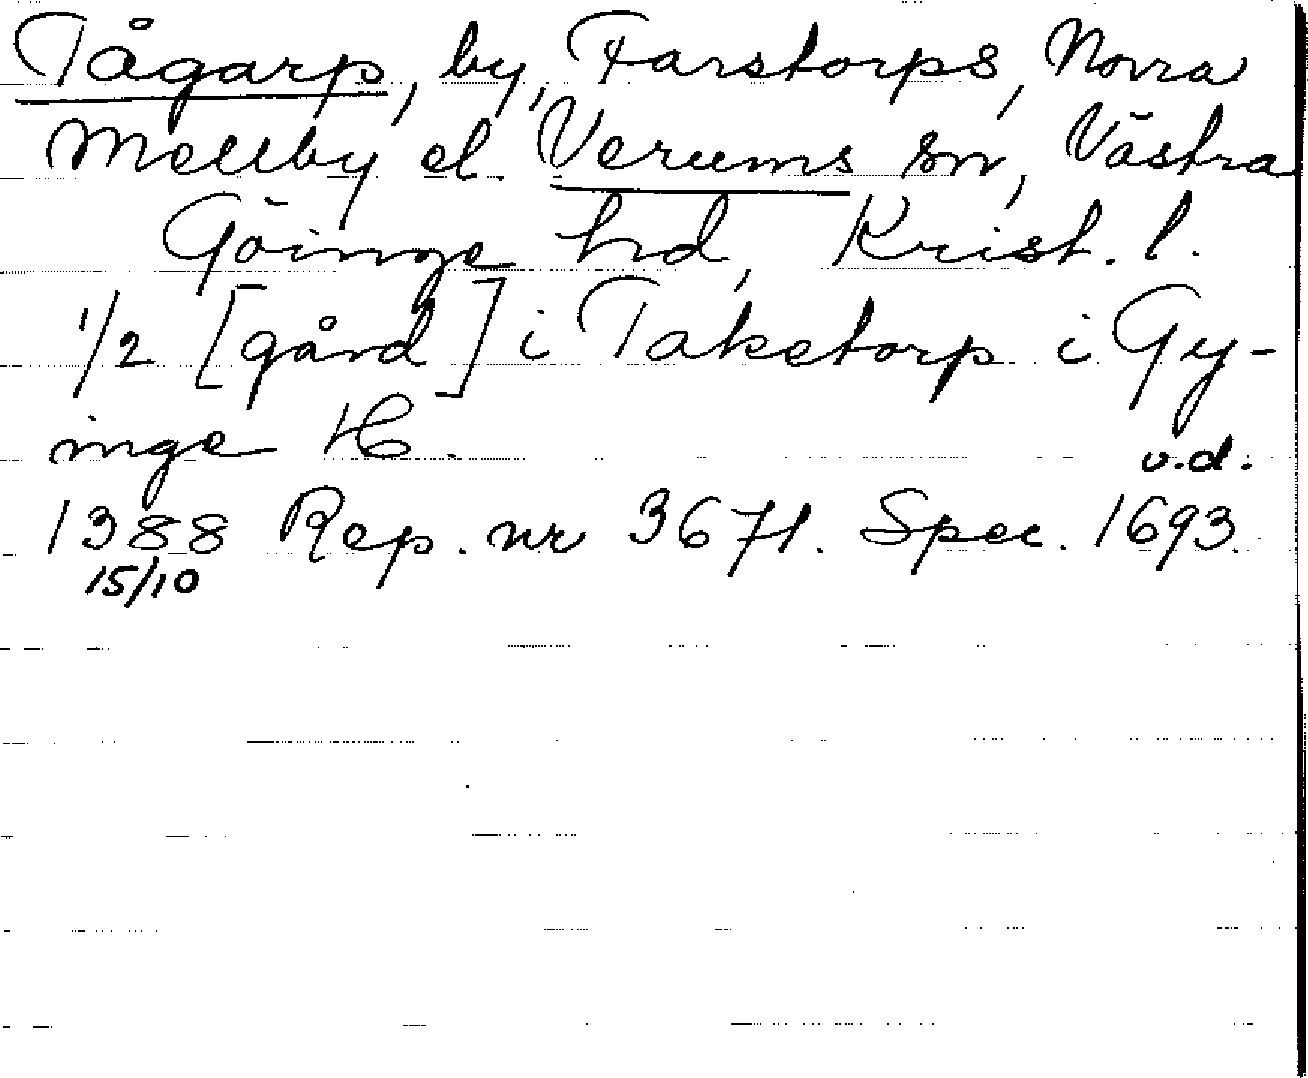 Tågarp, by, Farstorps, Norra
Mellby el. Verums sn, Västra
Göinge hd, Krist. l.
1/2 [gård] i Taketorp i Gy-
inge H.
v.d.
1388 Rep. nr 3671. Spec. 1693.
15/10